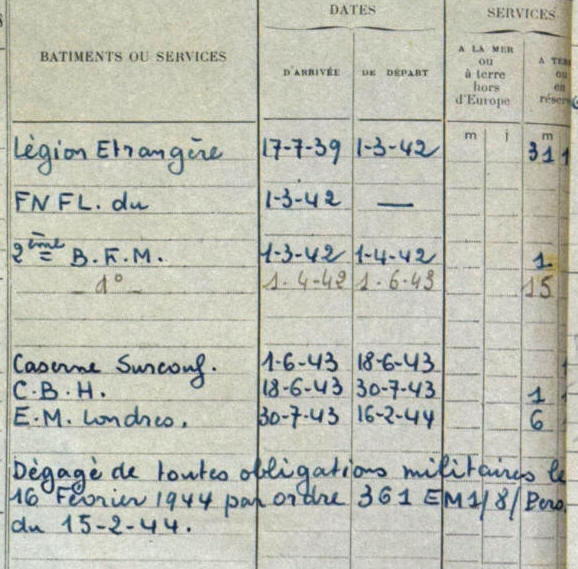 DATES SERVICES
BATIMENTS OU SERVICES D'ARRIVÉE DE DÉPART A LA MER
ou
à terre
hors
d'Europe
A TER
ou
en
réserv
m j m
Légion Etrangère 17-7-39 1-3-42 31
FNFL. du 1-3-42 —
2ème B.F.M. 1-3-42 1-4-42 1
— 1° 1.4-42 1.6-43 15
Caserne Surcouf. 1-6-43 18-6-43
C.B.H. 18-6-43 30-7-43 1
E.M. Londres. 30-7-43 16-2-44 6
Dégagé de toutes obligations militaires le
16 Février 1944 par ordre 361 EM1/8/Pers.
du 15-2-44.